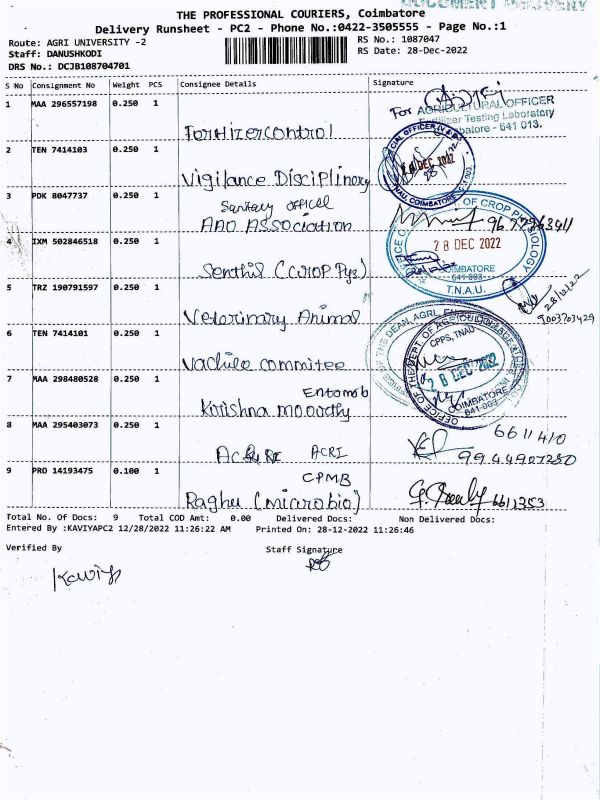 DOCUMENT DELIVERY
THE PROFESSIONAL COURIERS, Coimbatore
Delivery Runsheet - PC2 - Phone No.:0422-3505555 - Page No.:1
Route: AGRI UNIVERSITY -2
RS No.: 1087047
Staff: DANUSHKODI
RS Date: 28-Dec-2022
DRS No.: DCJB108704701
S No Consignment No Weight PCS Consignee Details Signature
1 MAA 296557198 0.250 1
For AGRICULTURAL OFFICER
Fertilizer Testing Laboratory
Coimbatore - 641 013.
Fertilizer control
2 TEN 7414103 0.250 1
28 DEC 2022
Vigilance Disciplinary
3 PDK 8047737 0.250 1
Sanitary officer
AAO Association
OFFICE OF CROP PHYSIOLOGY
28 DEC 2022
COIMBATORE
641-003
T.N.A.U.
4 IXM 502846518 0.250 1
Senthil (Crop Pys)
5 TRZ 190791597 0.250 1
28/12/22
Veterinary Animal
6 TEN 7414101 0.250 1
CPPS, TNAU
28 DEC 2022
COIMBATORE
641-003
commitee
7 MAA 298480528 0.250 1
Entomob
Krishna moorthy
8 MAA 295403073 0.250 1
6611410
ACRI
9944907280
9 PRO 14193475 0.100 1
CPMB
Raghu (microbio)
6611353
Total No. Of Docs: 9 Total COD Amt: 0.00 Delivered Docs: Non Delivered Docs:
Entered By :KAVIYAPC2 12/28/2022 11:26:22 AM Printed On: 28-12-2022 11:26:46
Verified By Staff Signature
Kaviya